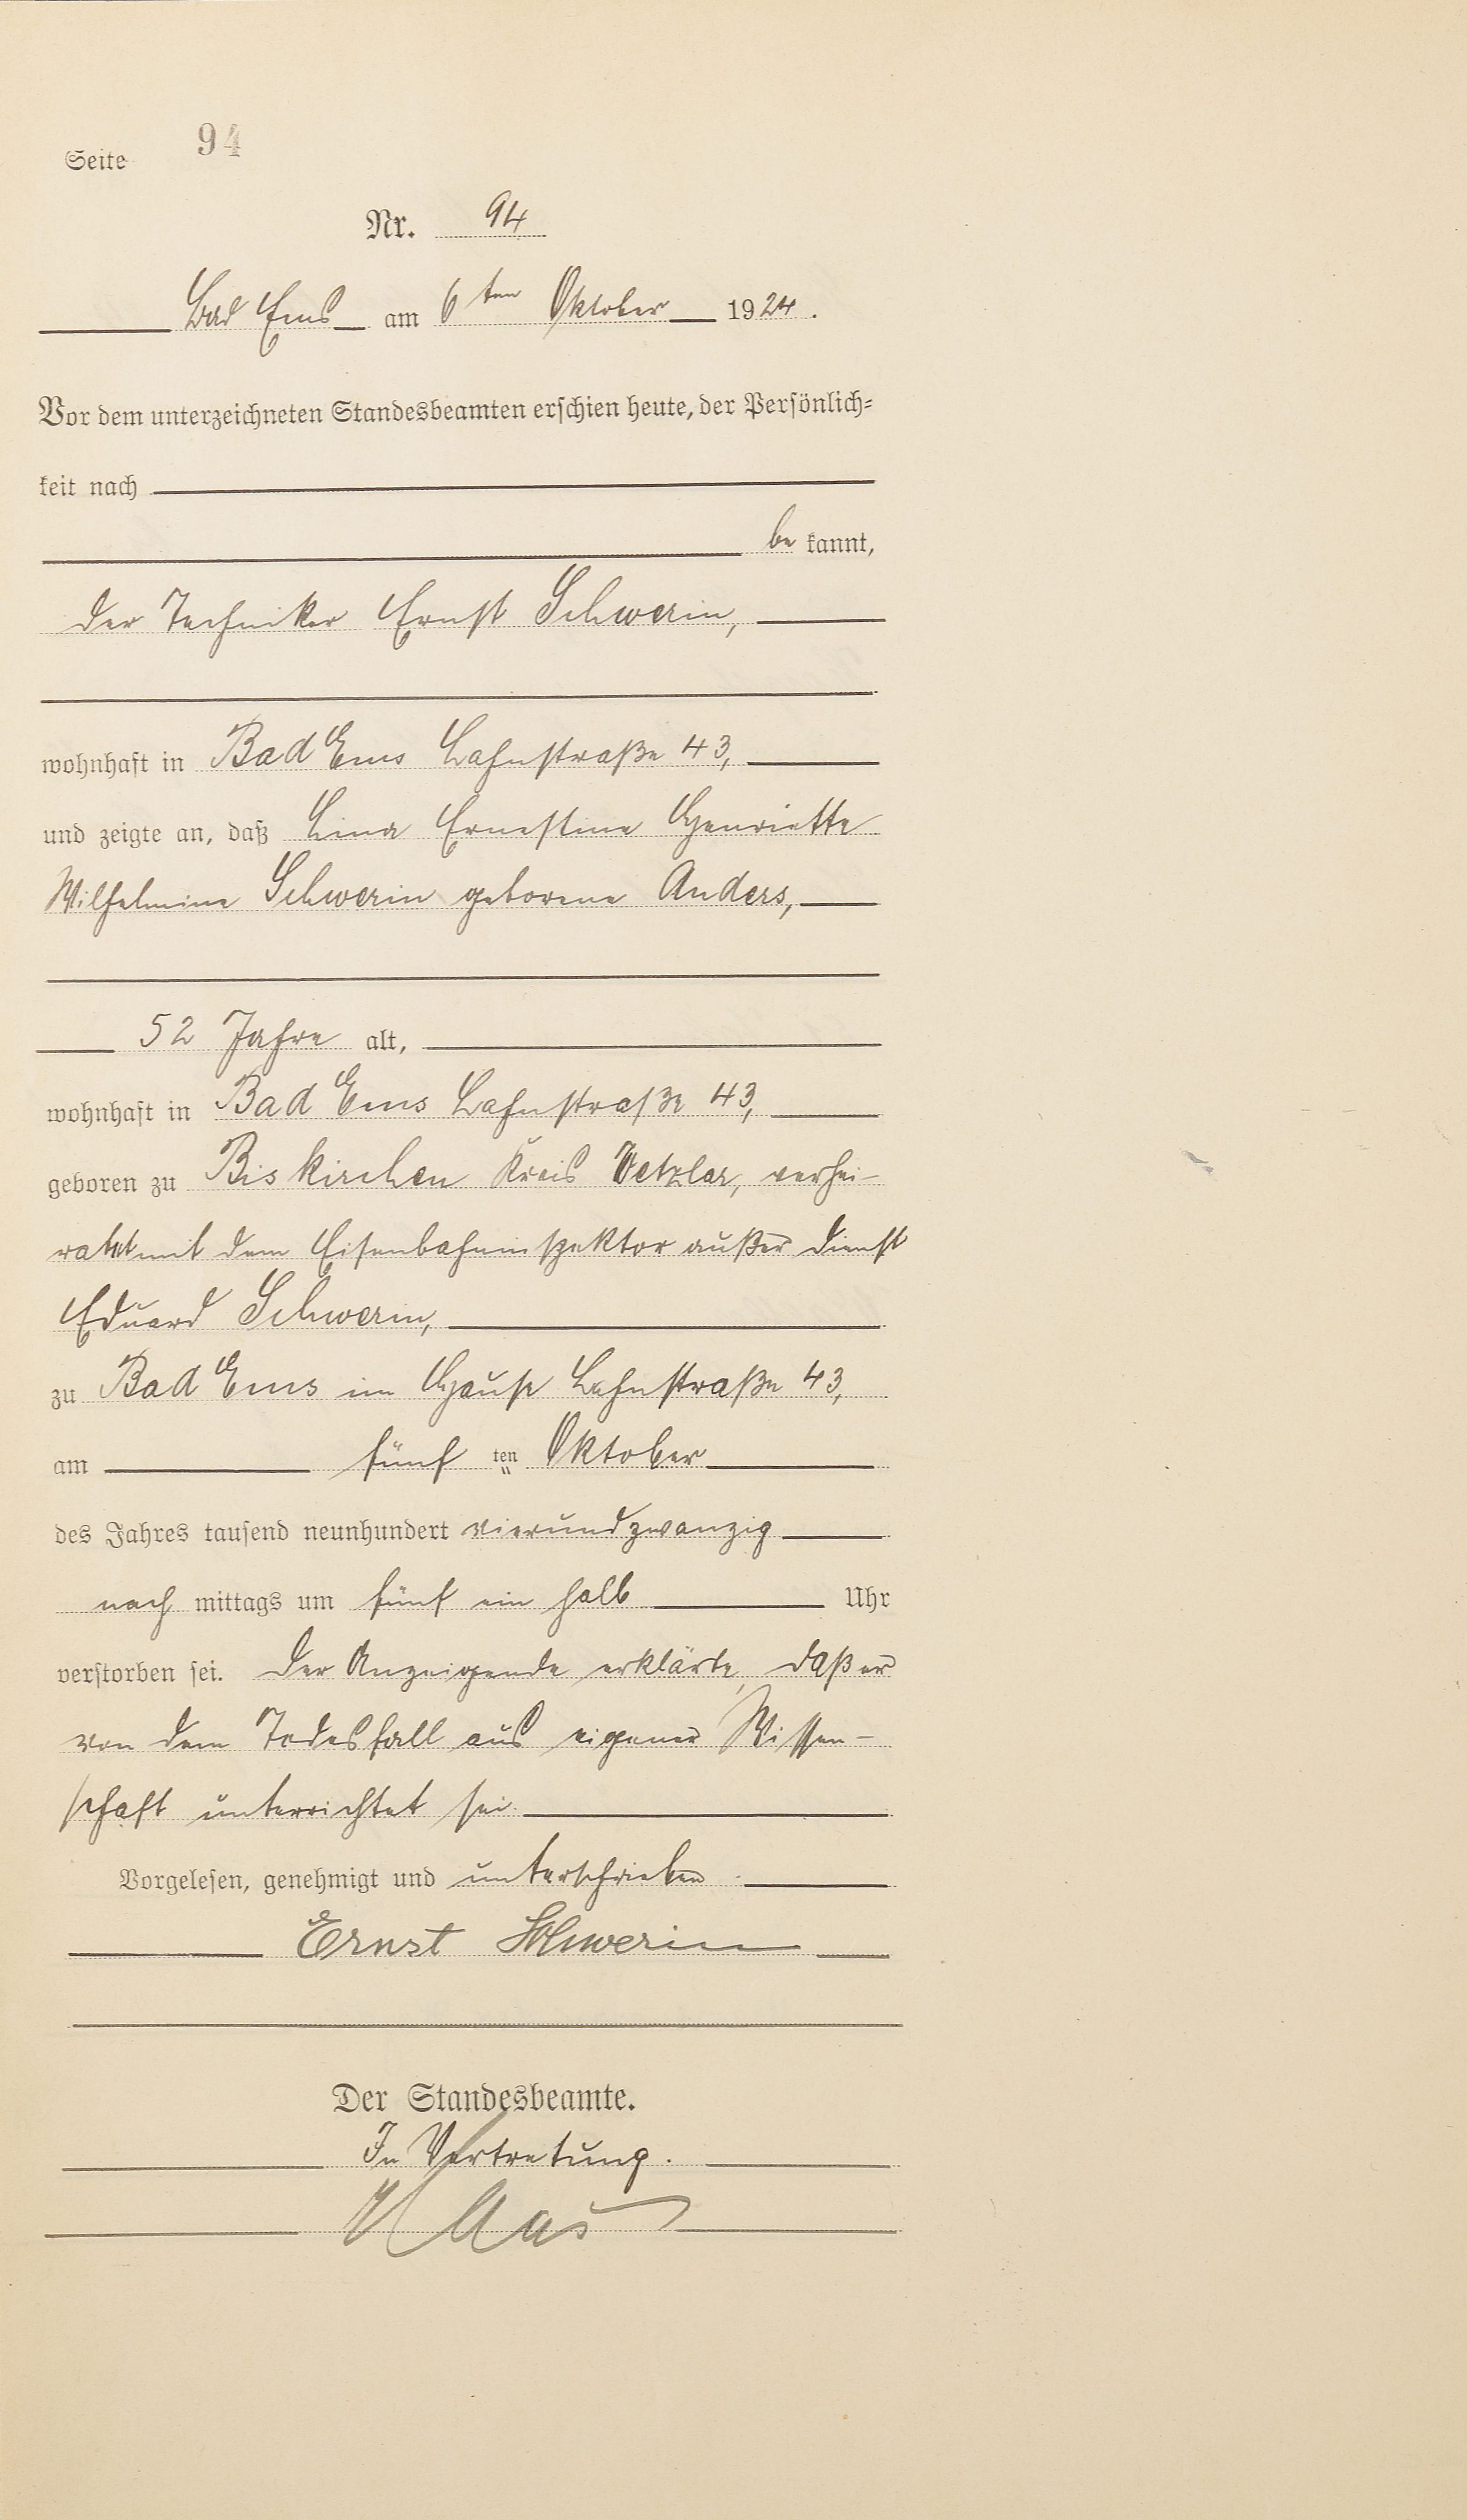 Seite 94
Nr. 94
Bad Ems am 6ten Oktober 1924.
Vor dem unterzeichneten Standesbeamten erschien heute, der Persönlich=
keit nach
be kannt,
der Techniker Ernst Schwerin,
wohnhaft in Bad Ems Lahnstraße 43,
und zeigte an, daß Lina Ernestine Henriette
Wilhelmine Schwerin geborene Anders,
52 Jahre alt,
wohnhaft in Bad Ems Lahnstraße 43,
geboren zu Biskirchen Kreis Wetzlar, verhei-
ratet mit dem Eisenbahninspektor außer Dienst
Eduard Schwerin,
zu Bad Ems im Hause Lahnstraße 43,
am fünf ten Oktober
des Jahres tausend neunhundert vierundzwanzig
nach mittags um fünf ein halb Uhr
verstorben sei. Der Anzeigende erklärte, daß er
von dem Todesfall aus eigener Wissen-
schaft unterrichtet sei.
Vorgelesen, genehmigt und unterschrieben
Ernst Schwerin
Der Standesbeamte.
In Vertretung.